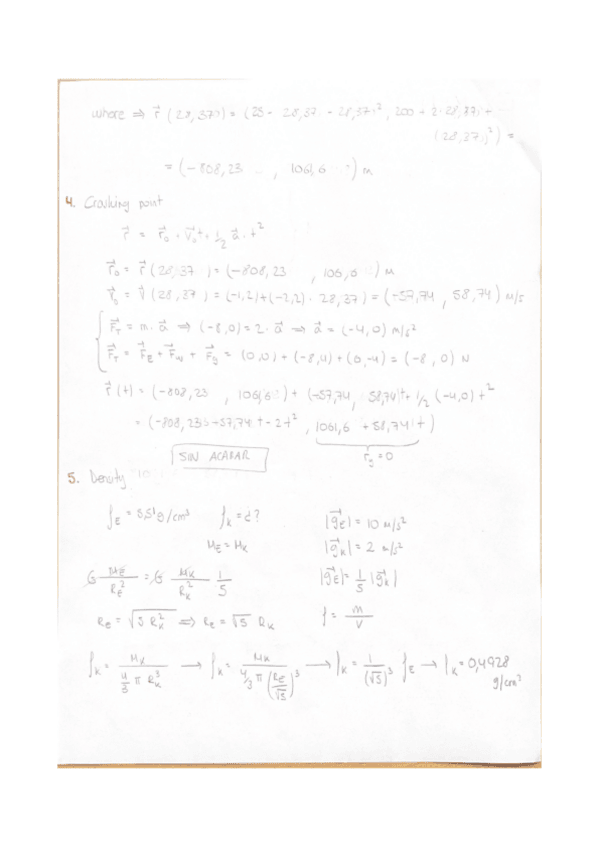 where ⇒ r⃗ (28,37) = (25 - 28,37 - 28,37², 200 + 2·28,37 +
(28,37)²) =
= (-808,23 , 1061,6 ) m
4. Crashing point
r⃗ = r⃗₀ + v⃗₀t + 1/2 a⃗·t²
r⃗₀ = r⃗ (28,37) = (-808,23 , 106,6 ) m
v⃗₀ = v⃗ (28,37) = (-1,2)+(-2,2)·28,37) = (-57,74, 58,74) m/s
F⃗T = m·a⃗ ⇒ (-8,0) = 2·a⃗ ⇒ a⃗ = (-4,0) m/s²
F⃗T = F⃗E + F⃗w + F⃗g = (0,0) + (-8,4) + (0,-4) = (-8,0) N
r⃗ (t) = (-808,23 , 1061,6 ) + (-57,74, 58,74)t + 1/2 (-4,0)t²
= (-808,23 +57,74 t - 2t², 1061,6 + 58,74 t)
SIN ACABAR
= 0
5. Density
ρE = 5,51 g/cm³ ρK = ¿?
|g⃗E| = 10 m/s²
ME = MK
|g⃗K| = 2 m/s²
G ME/RE² = G MK/RK² 1/5
|g⃗E| = 1/5 |g⃗K|
RE = √(5 RK²) ⇒ RE = √5 RK
ρ = m/V
ρK = MK/(4/3 π RK³) → ρK = MK/(4/3 π (RE/√5)³) → ρK = 1/(√5)³ ρE → ρK = 0,4928
g/cm³